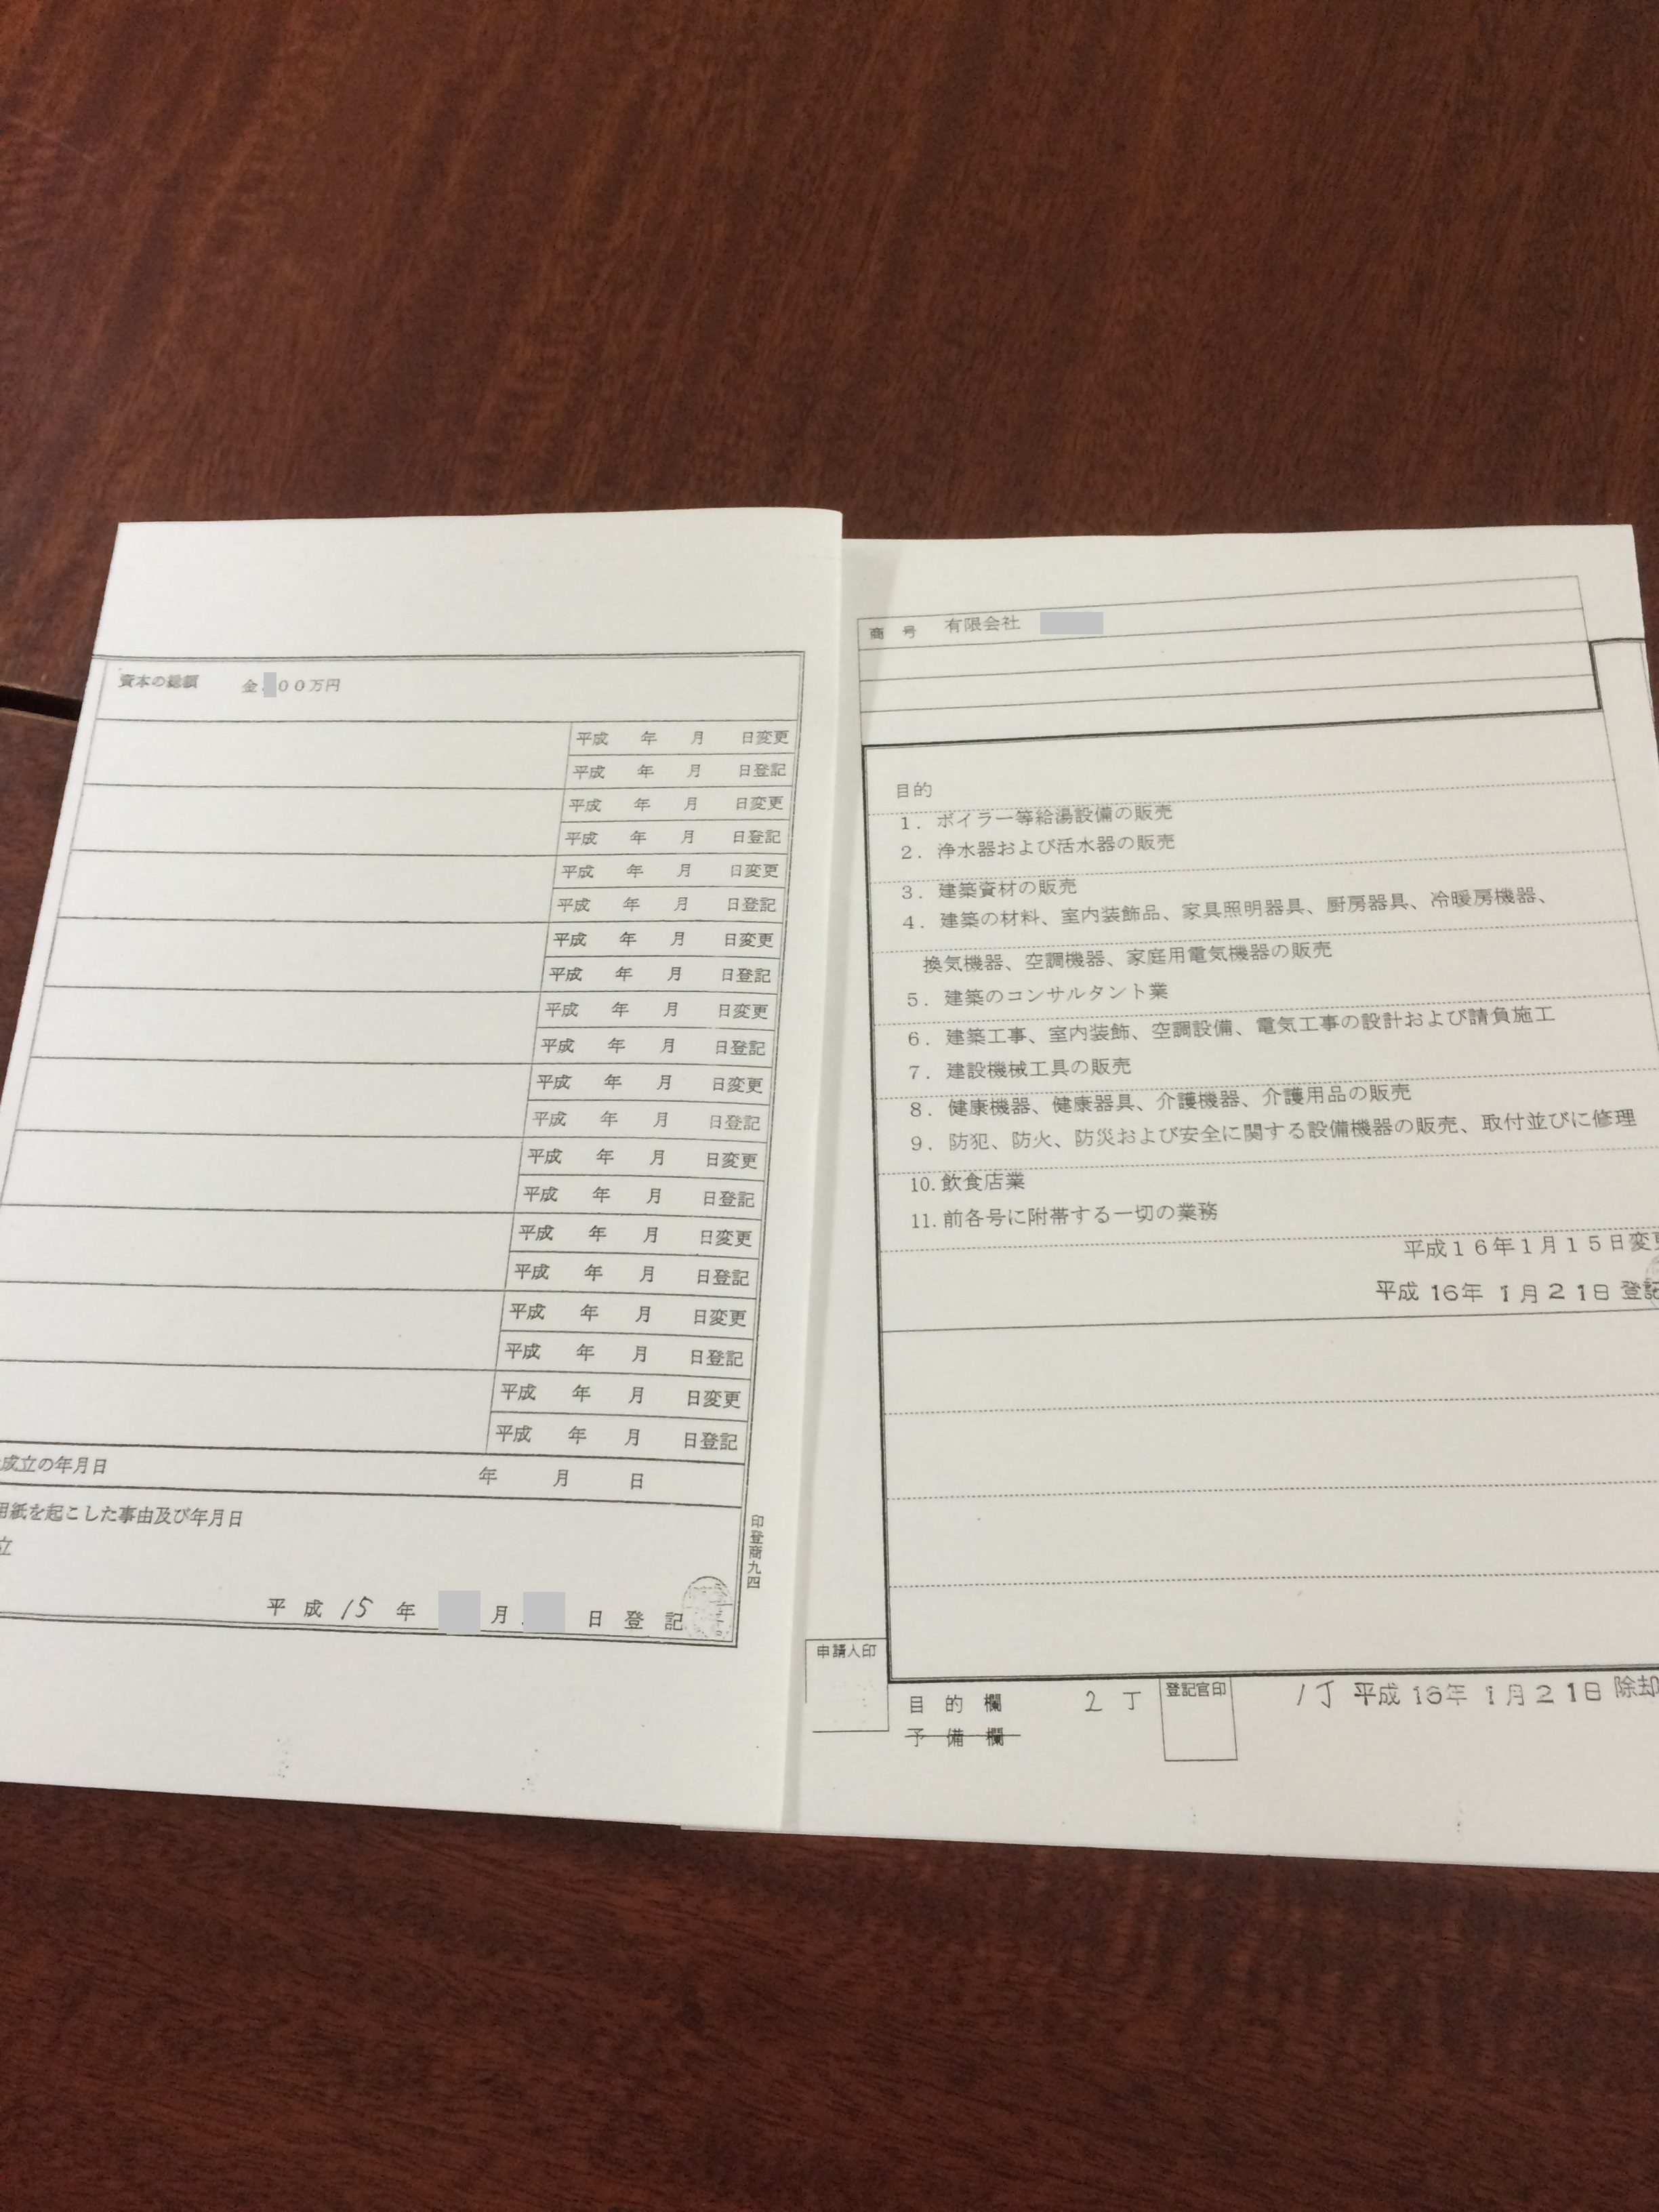 資本の総額 金 00万円
平成 年 月 日変更
平成 年 月 日登記
平成 年 月 日変更
平成 年 月 日登記
平成 年 月 日変更
平成 年 月 日登記
平成 年 月 日変更
平成 年 月 日登記
平成 年 月 日変更
平成 年 月 日登記
平成 年 月 日変更
平成 年 月 日登記
平成 年 月 日変更
平成 年 月 日登記
平成 年 月 日変更
平成 年 月 日登記
平成 年 月 日変更
平成 年 月 日登記
平成 年 月 日変更
平成 年 月 日登記
成立の年月日 年 月 日
用紙を起こした事由及び年月日
立
平成 15 年 月 日 登 記
印登商九四
商 号 有限会社
目的
1. ボイラー等給湯設備の販売
2. 浄水器および活水器の販売
3. 建築資材の販売
4. 建築の材料、室内装飾品、家具照明器具、厨房器具、冷暖房機器、
換気機器、空調機器、家庭用電気機器の販売
5. 建築のコンサルタント業
6. 建築工事、室内装飾、空調設備、電気工事の設計および請負施工
7. 建設機械工具の販売
8. 健康機器、健康器具、介護機器、介護用品の販売
9. 防犯、防火、防災および安全に関する設備機器の販売、取付並びに修理
10. 飲食店業
11. 前各号に附帯する一切の業務
平成16年1月15日変更
平成 16年 1月21日 登記
申請人印
目 的 欄 2 丁 登記官印 1丁 平成 16年 1月21日 除却
予 備 欄